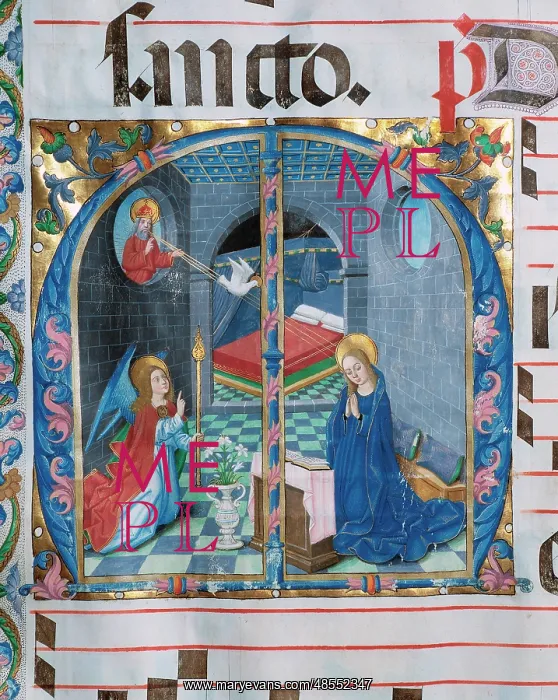 sancto. p D
ME
PL
ME
PL
www.maryevans.com/48552347